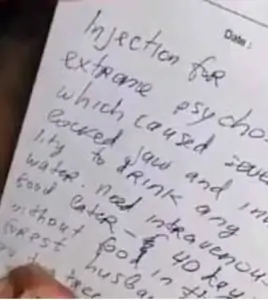 Date :
Injection for
extreme psycho
which caused seve
locked jaw and in
lity to drink any
water. Need intravenou
food later - 40 day
without food in th
husba